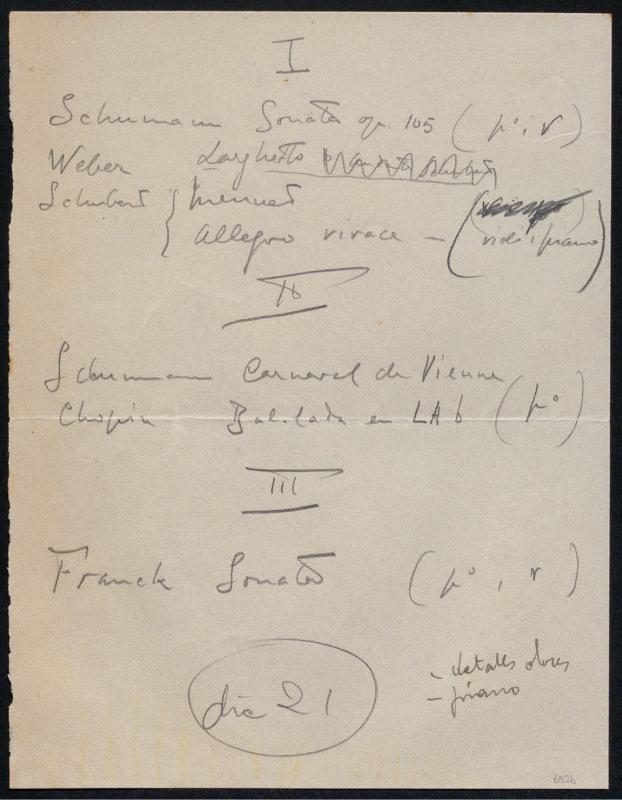 I
Schumann Sonata op. 105 (pº i v)
Weber Larghetto
Schubert { Menuet
Allegro vivace – (violi i piano)
II
Schumann Carnaval de Vienne
Chopin Balada en LA b (pº)
III
Franck Sonata (pº i v)
dia 21
- detalls obres
- piano
6926